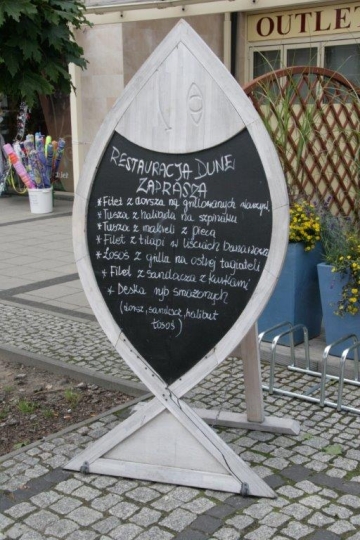 OUTLE
RESTAURACJA DUNE
ZAPRASZA
* Filet z dorsza na grillowanych warzyw.
* Tusza z halibuta na szpinaku
* Tusza z makreli z pieca
* Filet z tilapi w liściach bananowca
* Łosoś z grilla na ostrej tagiateli
* Filet z sandacza z kurkami
* Deska ryb smażonych
(dorsz, sandacz, halibut
łosoś)